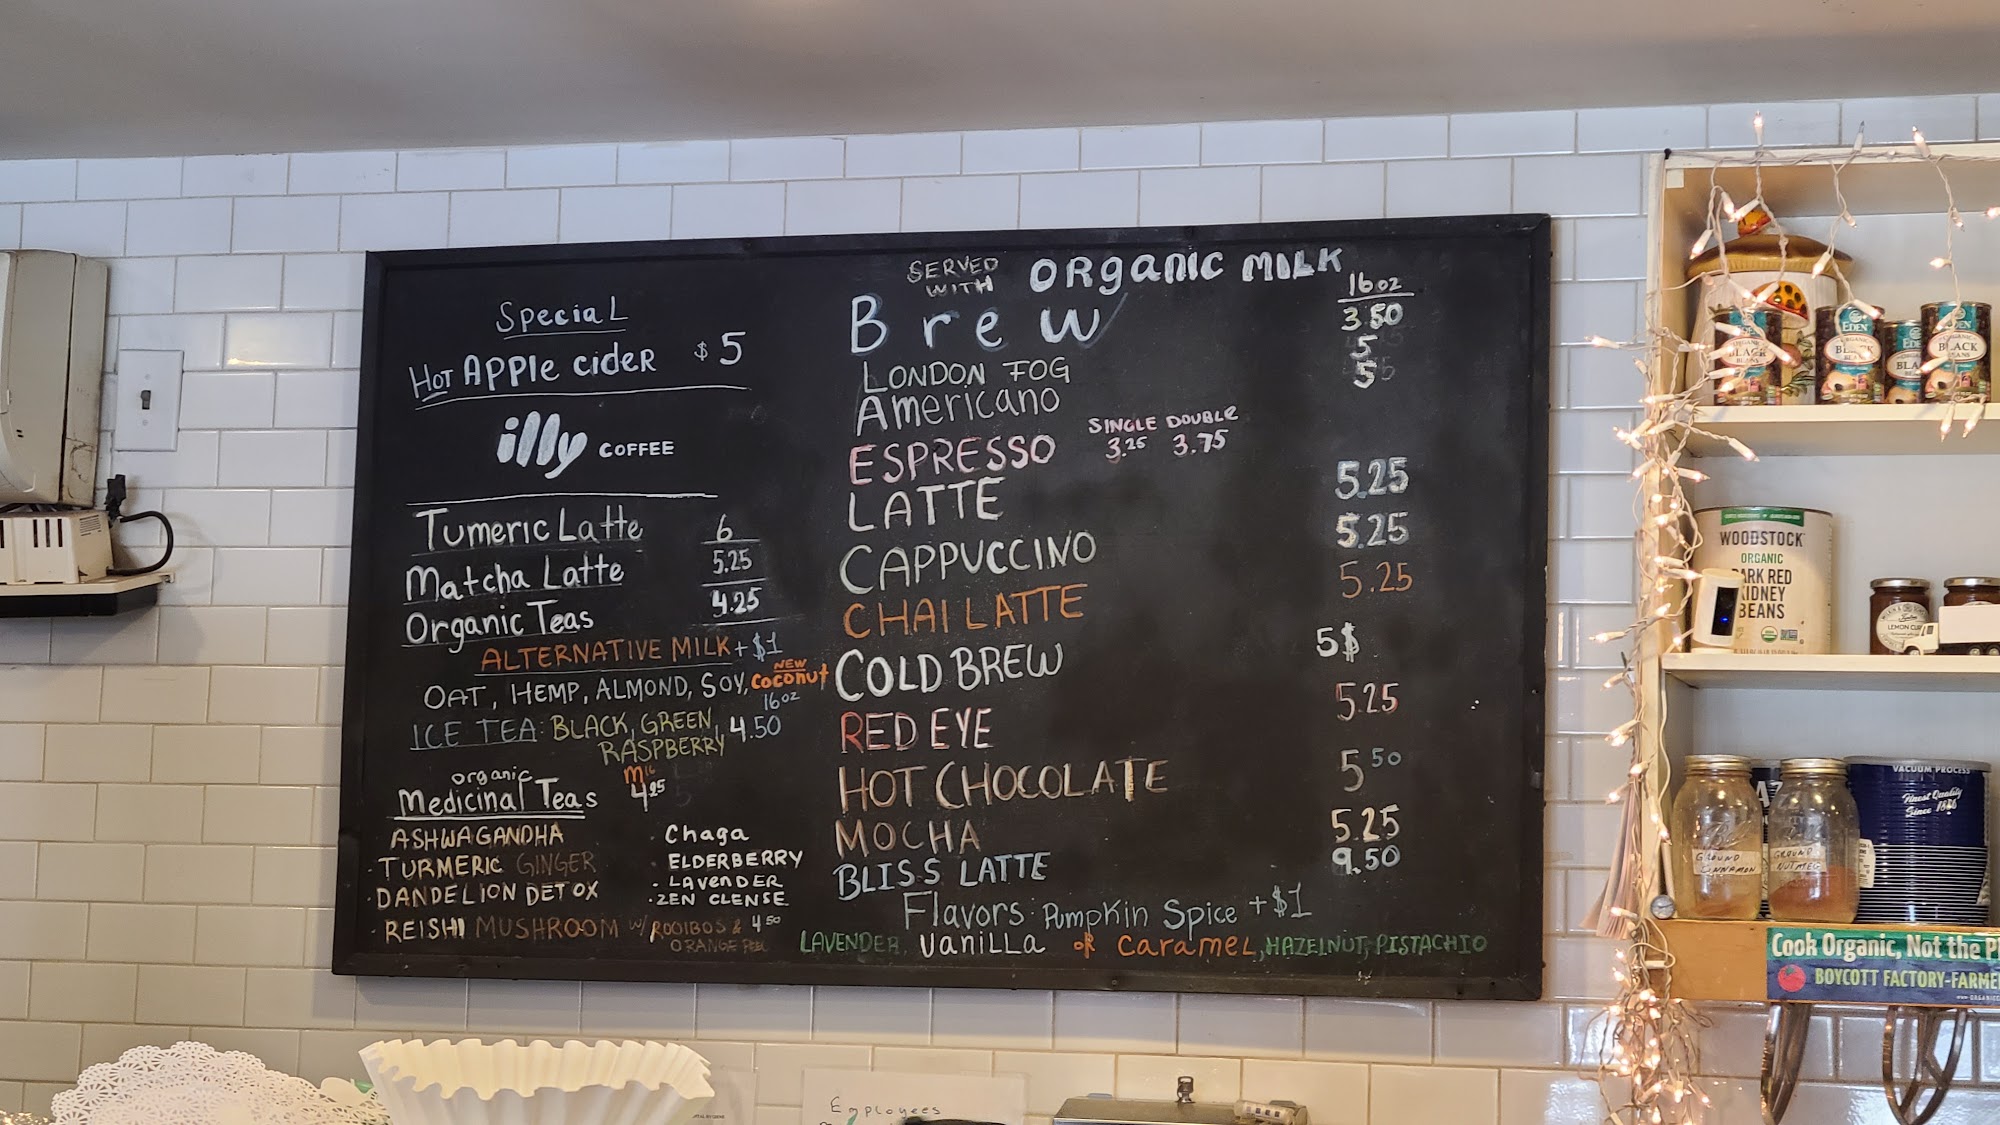 Special
Hot Apple Cider $5
illy COFFEE
Tumeric Latte 6
Matcha Latte 5.25
Organic Teas 4.25
ALTERNATIVE MILK + $1
OAT, HEMP, ALMOND, SOY, NEW Coconut
16oz
ICE TEA: BLACK, GREEN, 4.50
RASPBERRY
organic
Medicinal Teas 4.25
ASHWAGANDHA
· TURMERIC GINGER
· DANDELION DETOX
· REISHI MUSHROOM W/ ROOIBOS & 4.50
ORANGE PEEL
· Chaga
· ELDERBERRY
· LAVENDER
· ZEN CLENSE
SERVED WITH ORganic MILK
16oz
Brew 3.50
LONDON FOG 5
Americano 5
SINGLE DOUBLE
ESPRESSO 3.25 3.75
LATTE 5.25
CAPPUCCINO 5.25
CHAI LATTE 5.25
COLD BREW 5$
RED EYE 5.25
HOT CHOCOLATE 5.50
MOCHA 5.25
BLISS LATTE 9.50
Flavors: Pumpkin Spice + $1
LAVENDER, Vanilla or Caramel, HAZELNUT, PISTACHIO
EDEN
ORGANIC
BLACK
BEANS
EDEN
BLACK
EDEN
BLA
EDEN
BLACK
BEANS
WOODSTOCK
ORGANIC
DARK RED
KIDNEY
BEANS
LEMON
VACUUM PROCESS
Finest Quality
Since
Ball
GROUND
CINNAMON
Ball
GROUND
NUTMEG
Cook Organic, Not the P
BOYCOTT FACTORY-FARME
Employees